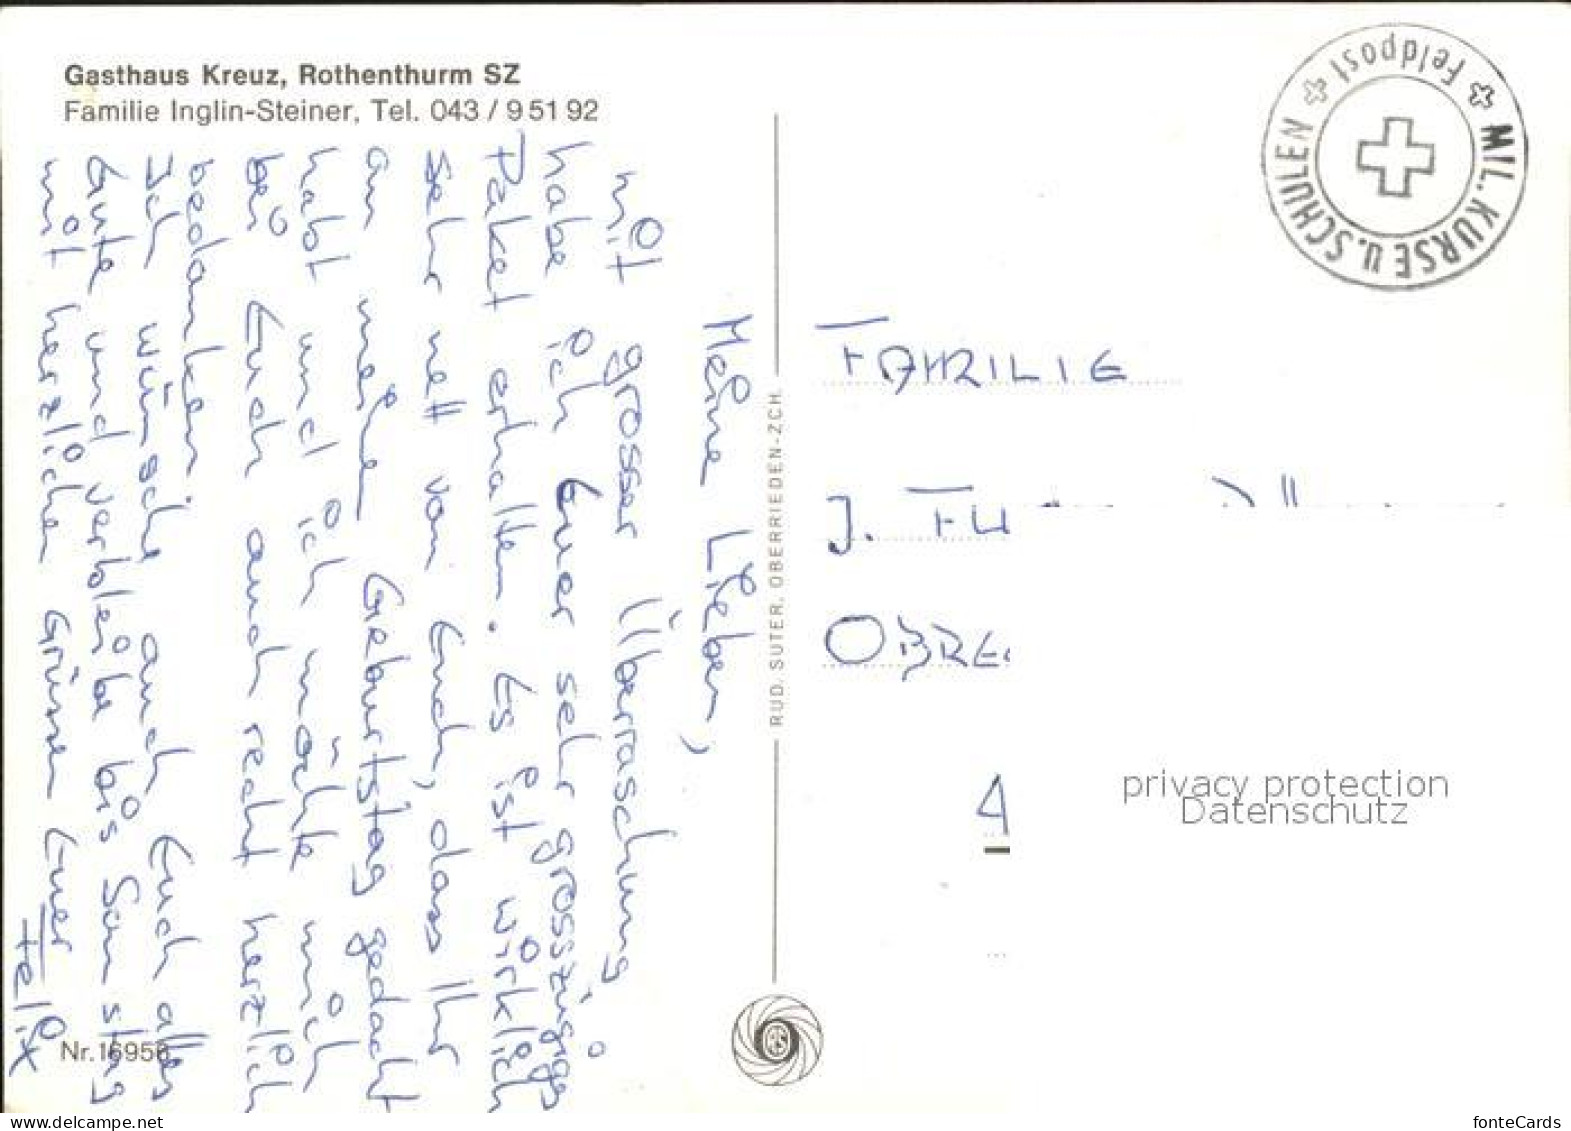 Gasthaus Kreuz, Rothenthurm SZ
Familie Inglin-Steiner, Tel. 043 / 9 51 92
Meine Lieben,
Mit grosser Überraschung
habe ich Euer sehr grosszügiges
Paket erhalten. Es ist wirklich
sehr nett von Euch, dass Ihr
an meinen Geburtstag gedacht
habt und ich möchte mich
bei Euch auch recht herzlich
bedanken
Ich wünsche auch Euch alles
Gute und verbleibe bis Samstag
mit herzlichen Grüssen Euer
Felix
Nr. 16956
RUD. SUTER, OBERRIEDEN-ZCH.
MIL. KURSE U. SCHULEN
Feldpost
FAMILIE
J.
privacy protection
Datenschutz
www.delcampe.net
fonteCards